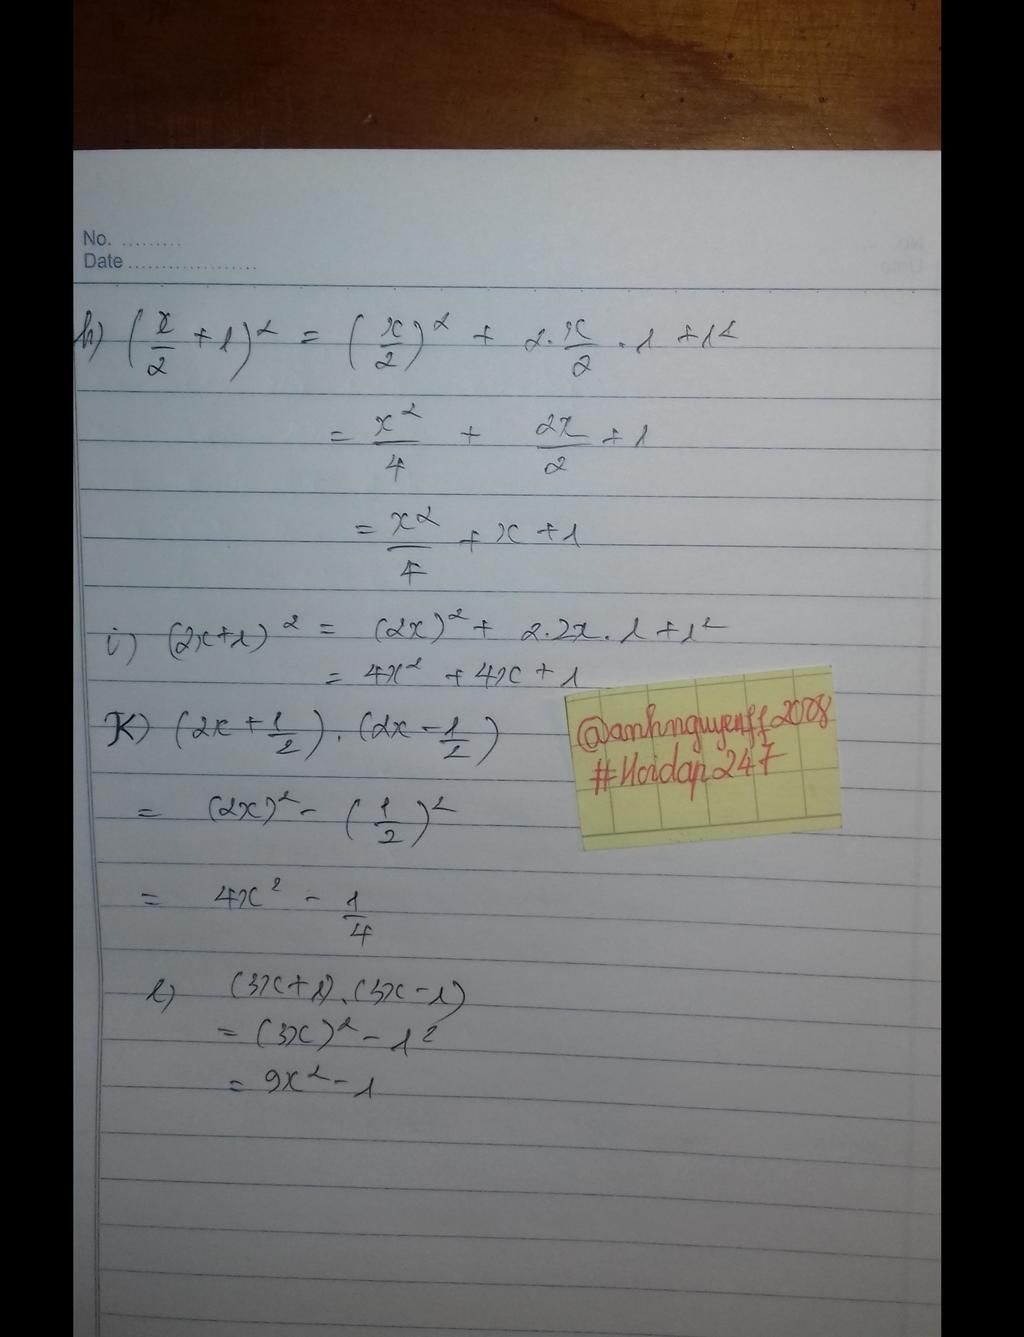 No. .........
Date ...................
h) (x/2 + 1)² = (x/2)² + 2.x/2 . 1 + 1²
= x²/4 + 2x/2 + 1
= x²/4 + x + 1
i) (2x+1)² = (2x)² + 2.2x.1+1²
= 4x² + 4x + 1
K) (2x + 1/2).(2x - 1/2)
@anhnguyenff2008
#Hoidap247
= (2x)² - (1/2)²
= 4x² - 1/4
l) (3x+1).(3x-1)
= (3x)² - 1²
= 9x² - 1